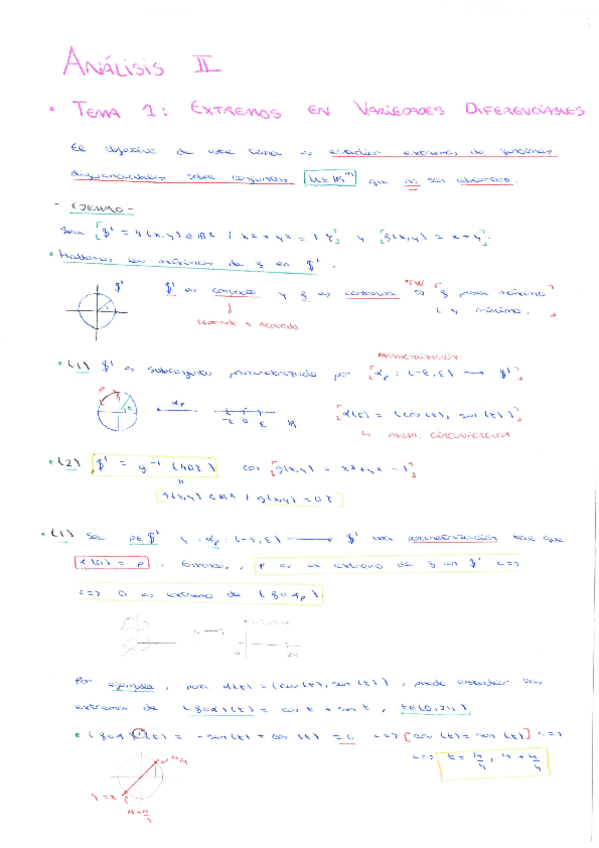 ANÁLISIS II
• TEMA 1: EXTREMOS EN VARIEDADES DIFERENCIABLES
El objetivo de este tema es estudiar extremos de funciones
diferenciables sobre conjuntos U ⊂ ℝⁿ que no son abiertos.
- EJEMPLO -
Sea S¹ = {(x,y) ∈ ℝ² / x² + y² = 1} y f(x,y) = x + y.
• Hallemos los máximos de f en S¹.
S¹ S¹ es compacto y f es continua ⇒ f posee máximo
y mínimo.
cerrado y acotado
PARAMETRIZACIÓN:
• (1) S¹ es subconjunto parametrizado por αp : (-ε, ε) → S¹
P αp -ε 0 ε ℝ α(t) = (cos(t), sin(t))
↳ PARAM. CIRCUNFERENCIA
• (2) S¹ = g⁻¹({0}) con g(x,y) = x² + y² - 1
{(x,y) ∈ ℝ² / g(x,y) = 0}
• (1) Sea p ∈ S¹ y αp : (-ε, ε) → S¹ una parametrización tal que
α(0) = p. Entonces, p es un extremo de f en S¹ <=>
<=> 0 es extremo de (f∘αp)
0 2π
Por ejemplo, para α(t) = (cos(t), sin(t)), puedo estudiar los
extremos de (f∘α)(t) = cos t + sin t, t ∈ (0, 2π)
• (f∘α)'(t) = -sin(t) + cos(t) = 0 <=> cos(t) = sin(t) <=>
<=> t = π/4, π + π/4
y = x
π + π/4